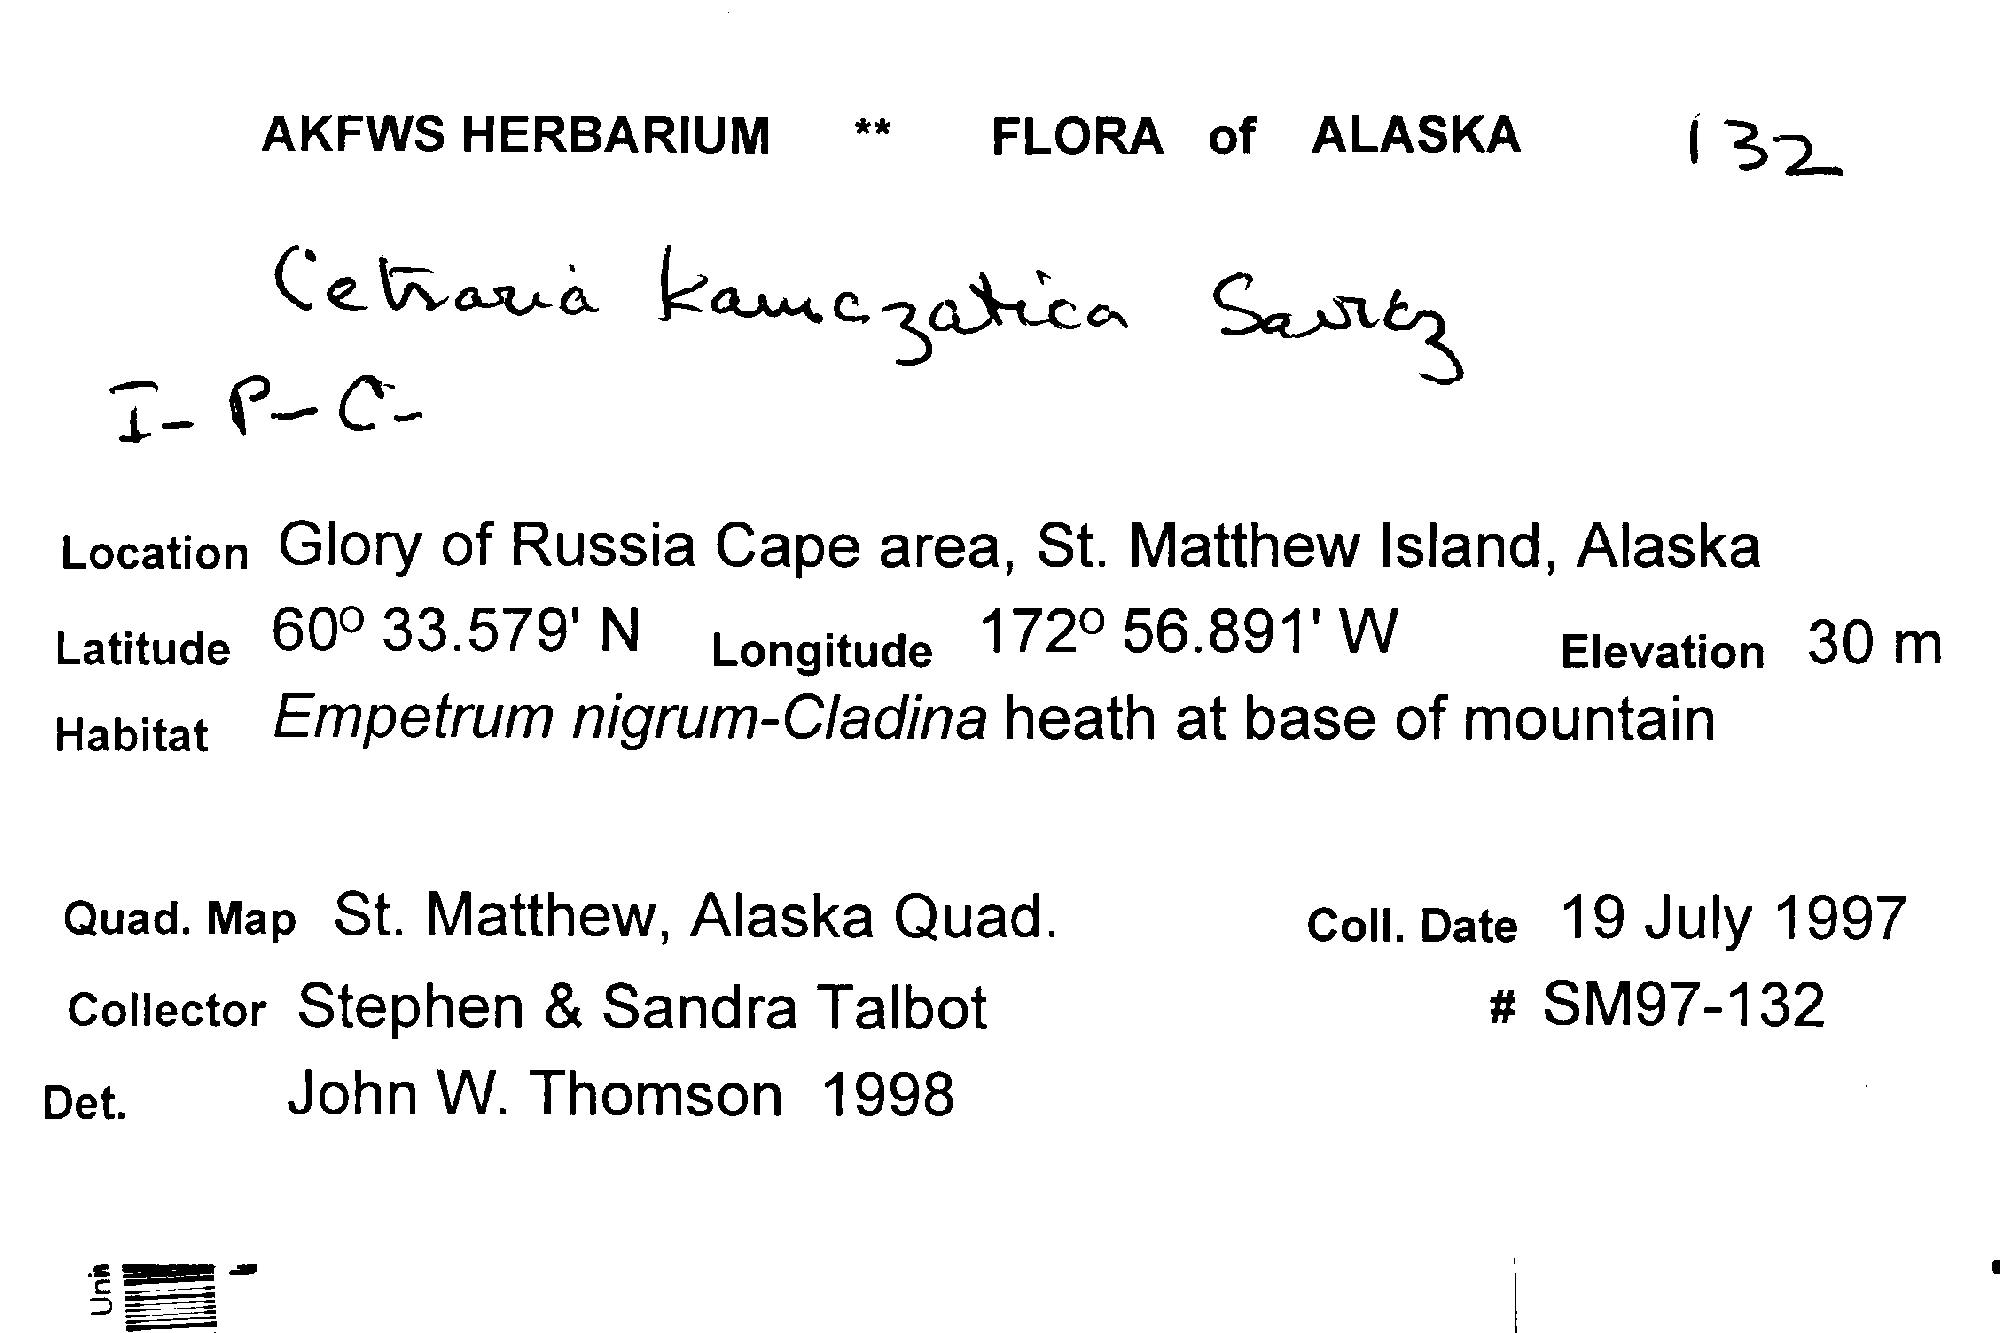 AKFWS HERBARIUM ** FLORA of ALASKA 132
Cetraria kamczatica Savicz
I- P- C-
Location Glory of Russia Cape area, St. Matthew Island, Alaska
Latitude 60º 33.579' N Longitude 172º 56.891' W Elevation 30 m
Habitat Empetrum nigrum-Cladina heath at base of mountain
Quad. Map St. Matthew, Alaska Quad. Coll. Date 19 July 1997
Collector Stephen & Sandra Talbot # SM97-132
Det. John W. Thomson 1998
Uni